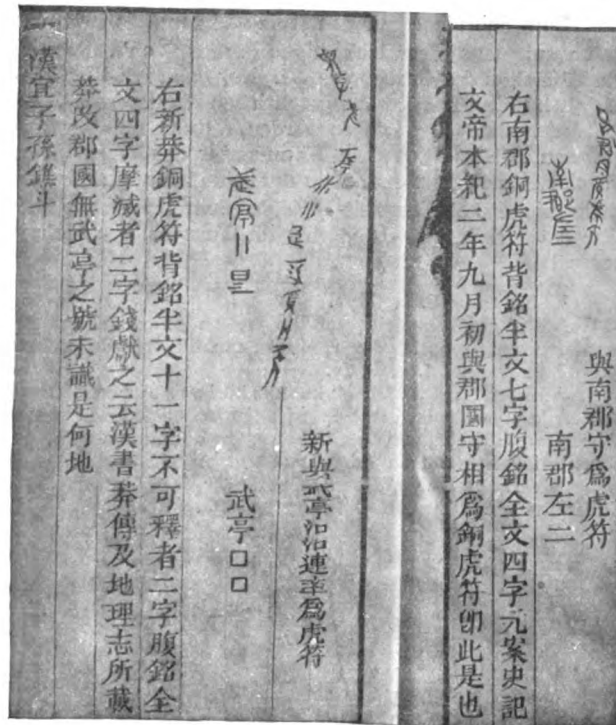 與南郡守爲虎符
南郡左二
右南郡銅虎符背銘半文七字腹銘全文四字元案史記
文帝本紀二年九月初與郡國守相爲銅虎符卽此是也
新與武亭沿沿連率爲虎符
武亭口口
右新莽銅虎符背銘半文十一字不可釋者二字腹銘全
文四字摩滅者二字錢獻之云漢書莽傳及地理志所載
莽改郡國無武亭之號未識是何地
漢宜子孫鐎斗